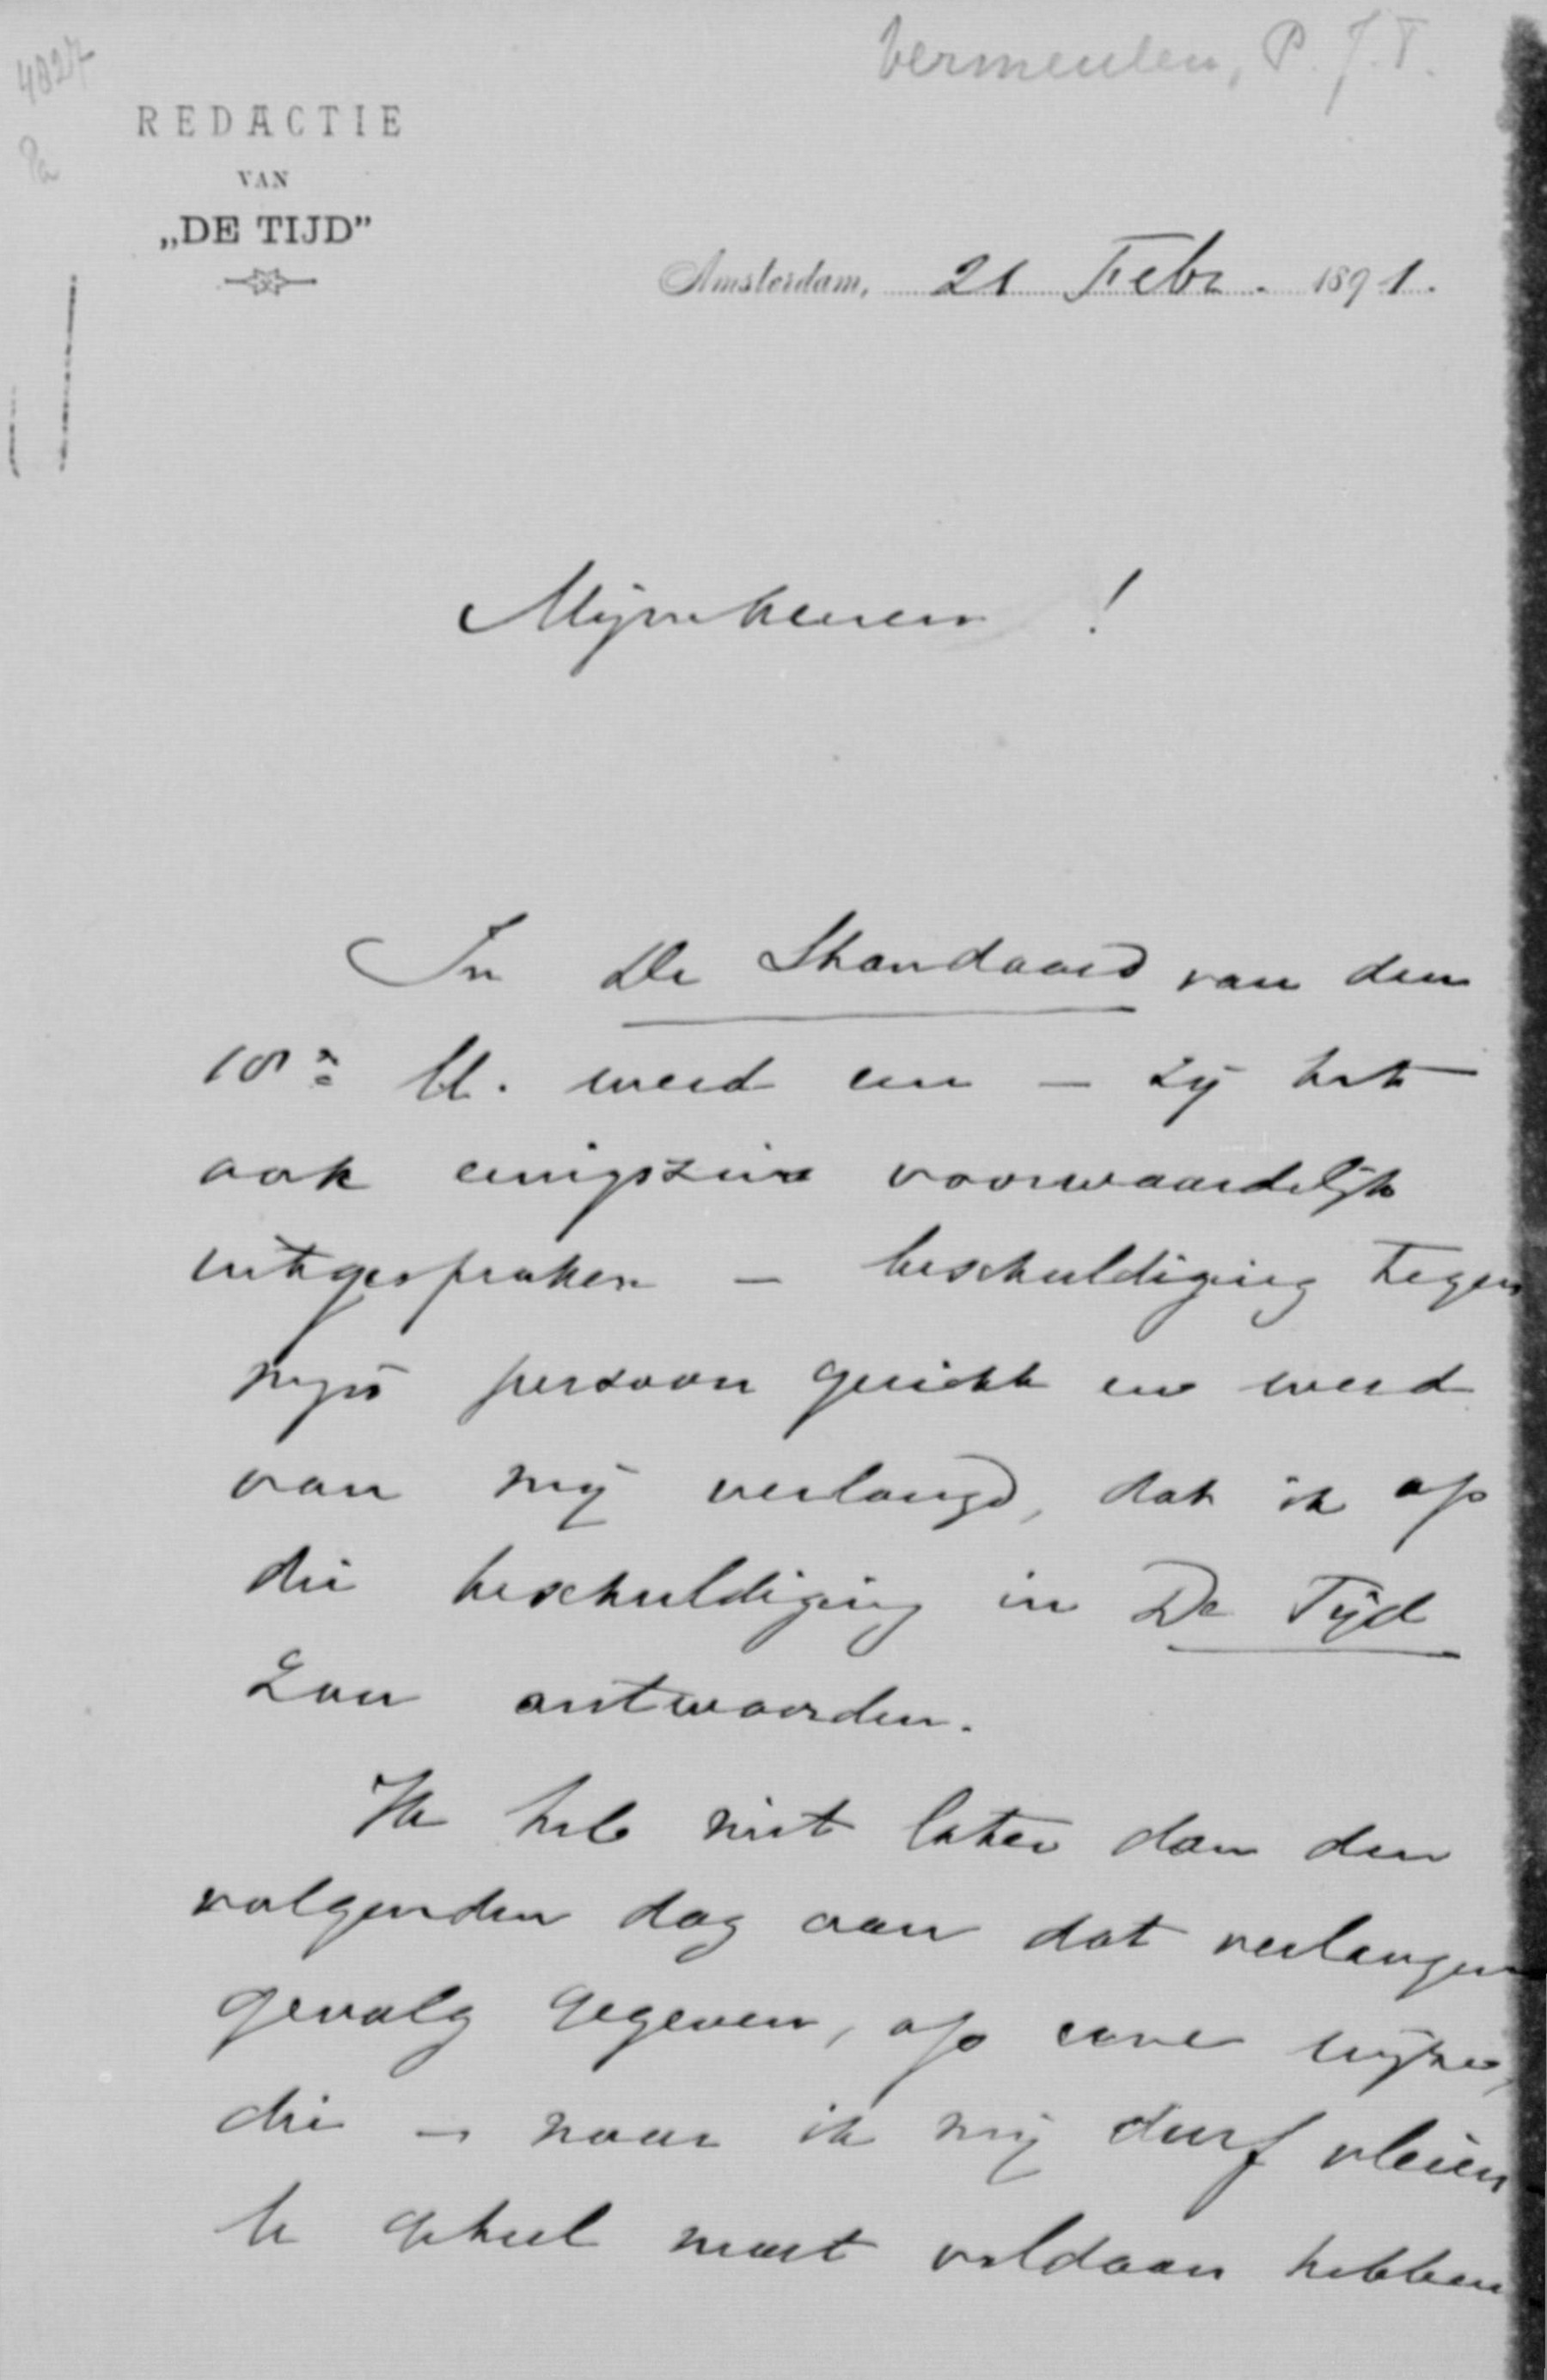 Vermeulen, P. J. T.
4827
REDACTIE
VAN
„DE TIJD”
Amsterdam, 21 Febr. 1891.
Mijnheeren !
In De Standaard van den
ll. werd een — zij het
ook eenigszins voorwaardelijk
uitgesproken — beschuldiging tegen
mijn persoon gericht en werd
van mij verlangd, dat ik op
die beschuldiging in De Tijd
zou antwoorden.
Ik heb niet later dan den
volgenden dag aan dat verlangen
gevolg gegeven, op eene wijze,
die — naar ik mij durf vleien
U geheel moet voldaan hebben